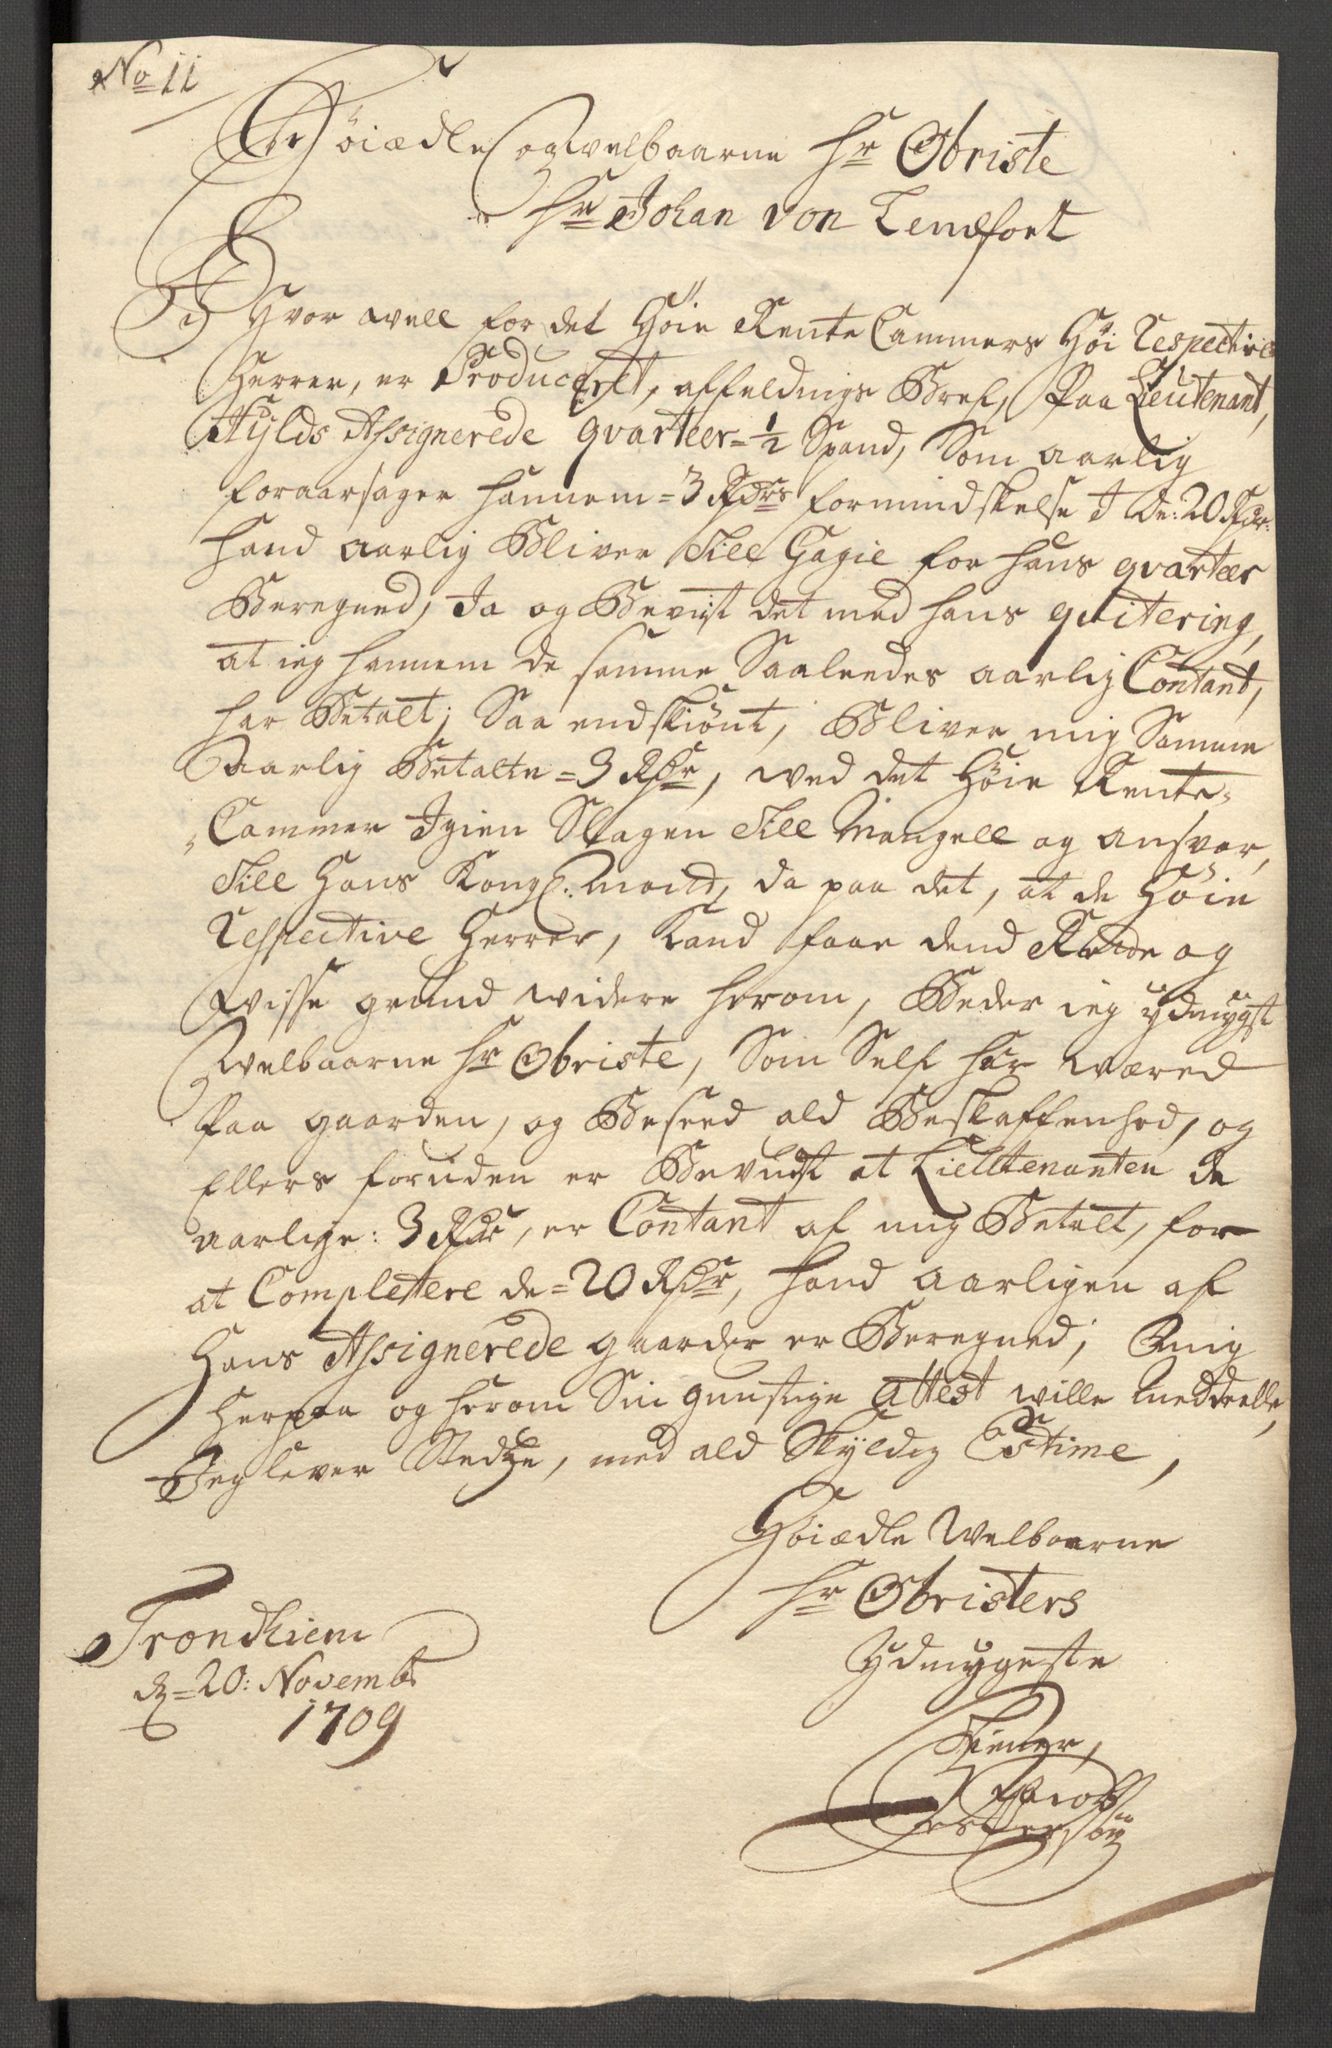 No 11
Høiædle og welbaarne Hr Obriste
Hr Johan von Lemfort
I Hvor well for det Høie Rente Cammers Høi Respective
Herrer, er Produceret, affeldnings Bref, Paa Lieutenant,
Hylds Assignerede qvarteer = 1/2 Spand, Som aarlig
foraarsager hannem = 3 Rdrs formindskelse I de: 20 Rdr:
hand aarlig Bliver Till Gagie for hans qvarteer
Beregned, Ja og Beviist det med hans qvitering,
at ieg hannem de samme Saaleedes aarlig Contant,
har Betalt; Saa endskiønt, Bliver mig Samme
Aarlig Betalte = 3 Rdr, wed det Høie Rente-
Cammer Igien Slagen Till Mangell og ansvar,
Till Hans Kongl: Maytt, da paa det, at de Høie
Respective Herrer, kand faae dend Rette og
wisse grund widere herom, Beder ieg ydmygst
Welbaarne Hr Obriste, Som Self har wæred
Paa gaarden, og Beseed ald Beskaffenhed, og
Ellers foruden er Bevust at Lieutenanten de
aarlige: 3 Rdr, er Contant af mig Betalt, for
at Complettere de = 20 Rdr, hand aarligen af
Hans Assignerede gaarder er Beregned; mig
herpaa og herom Sin gunstige Attest wille meddeelle,
Jeg lever Stedtze, med ald Skyldig Estime,
Høiædle Welbaarne
Hr Obristers
Ydmygeste
Tiener,
Trondhiem
d = 20: Novembr
1709